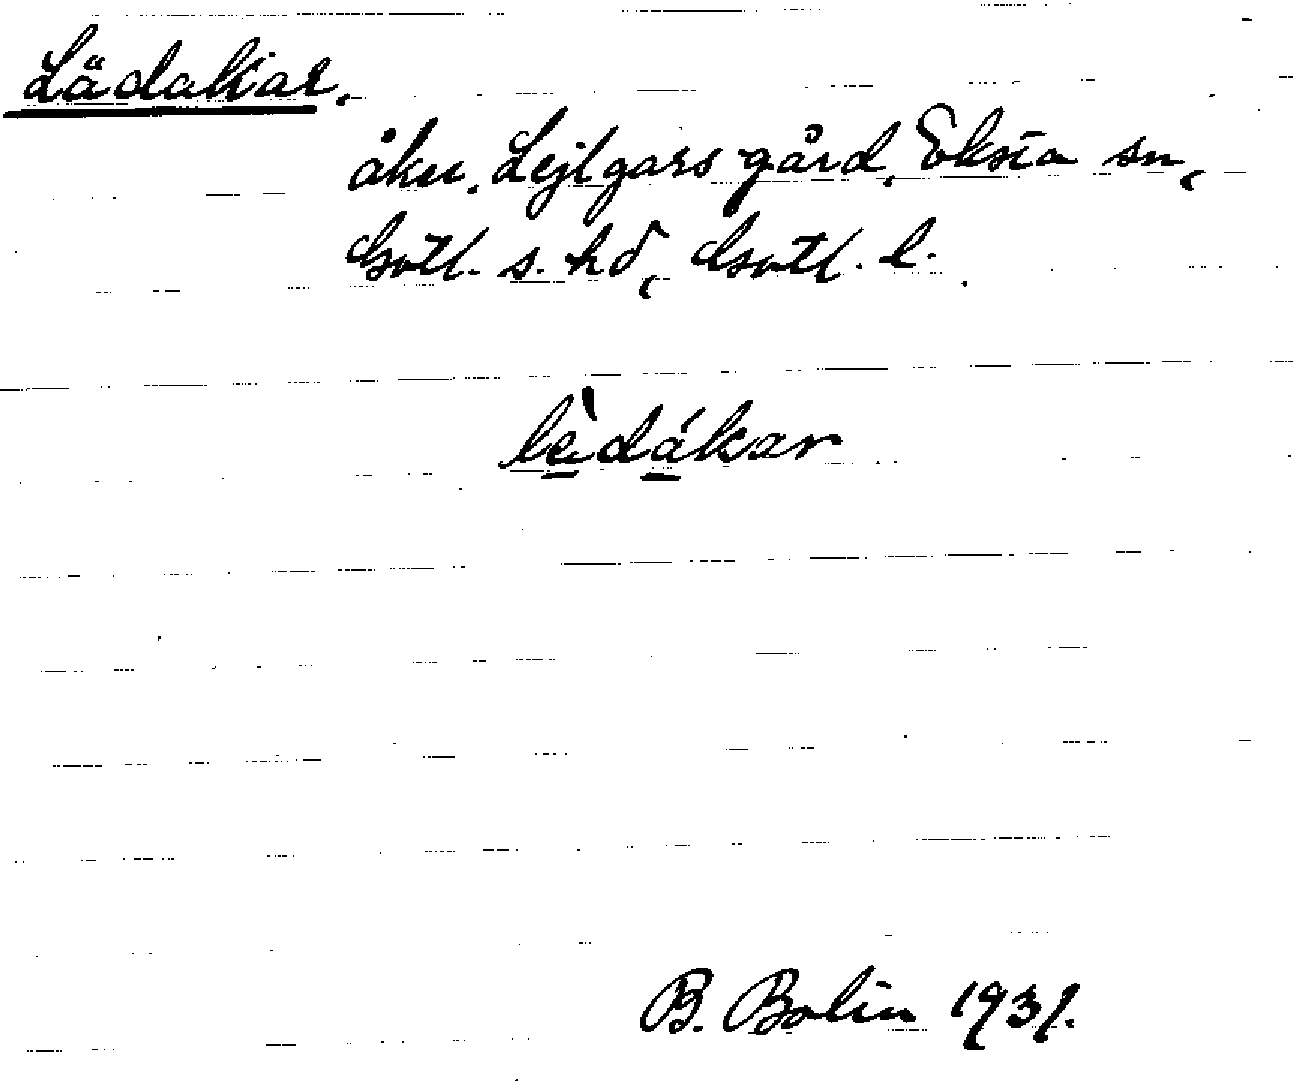 Lädakar.
åku. Lejlgars gård, Eksta sn,
Gotl. s. hd, Gotl. l.
lèdákar
B. Bolin 1931.